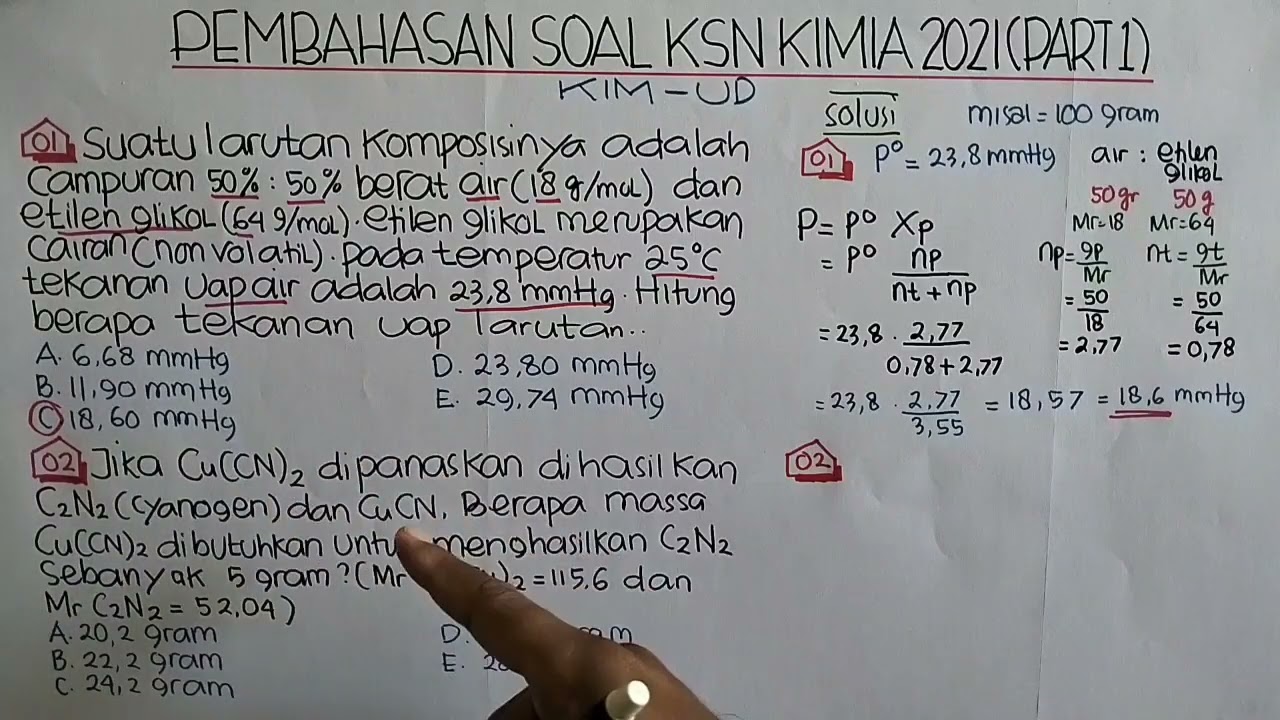 PEMBAHASAN SOAL KSN KIMIA 2021 (PART 1)
KIM-UD
01 Suatu larutan komposisinya adalah
campuran 50% : 50% berat air (18 g/mol) dan
etilen glikol (64 g/mol). etilen glikol merupakan
cairan (non volatil). pada temperatur 25°C
tekanan uap air adalah 23,8 mmHg. Hitung
berapa tekanan uap larutan..
A. 6,68 mmHg
B. 11,90 mmHg
C 18,60 mmHg
D. 23,80 mmHg
E. 29,74 mmHg
02 Jika Cu(CN)2 dipanaskan dihasilkan
C2N2 (cyanogen) dan CuCN. Berapa massa
Cu(CN)2 dibutuhkan menghasilkan C2N2
sebanyak 5 gram? (Mr )2 = 115,6 dan
Mr C2N2 = 52,04)
A. 20,2 gram
B. 22,2 gram
C. 24,2 gram
D.
E.
solusi
misal = 100 gram
01 P° = 23,8 mmHg
air : etilen
glikol
50 gr 50 g
Mr=18 Mr=64
P = P° Xp
= P° np
nt + np
= 23,8 . 2,77
0,78 + 2,77
= 23,8 . 2,77 = 18,57 = 18,6 mmHg
3,55
np = gp
Mr
= 50
18
= 2,77
nt = gt
Mr
= 50
64
= 0,78
02